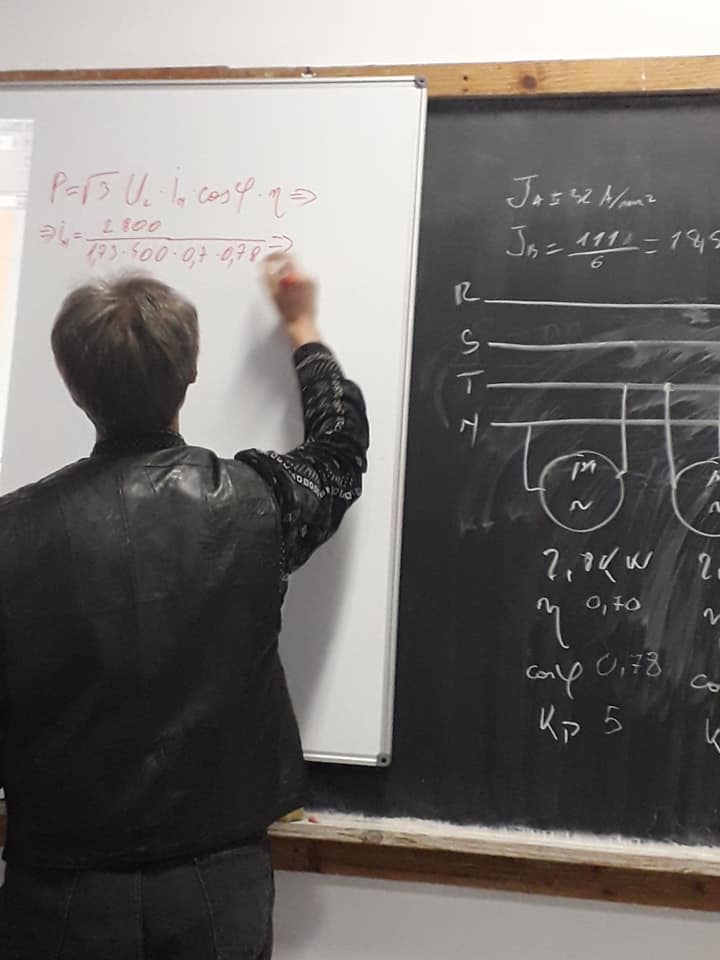 P=√3 U_L · i_n · cosφ · η ⇒
⇒ i_n = 2800 / 1,73 · 400 · 0,7 · 0,78 ⇒
A/mm²
J_B = 111 / 6 = 18,5
R
S
T
N
M
~
~
2,8KW
η 0,70
cosφ 0,78
Kp 5